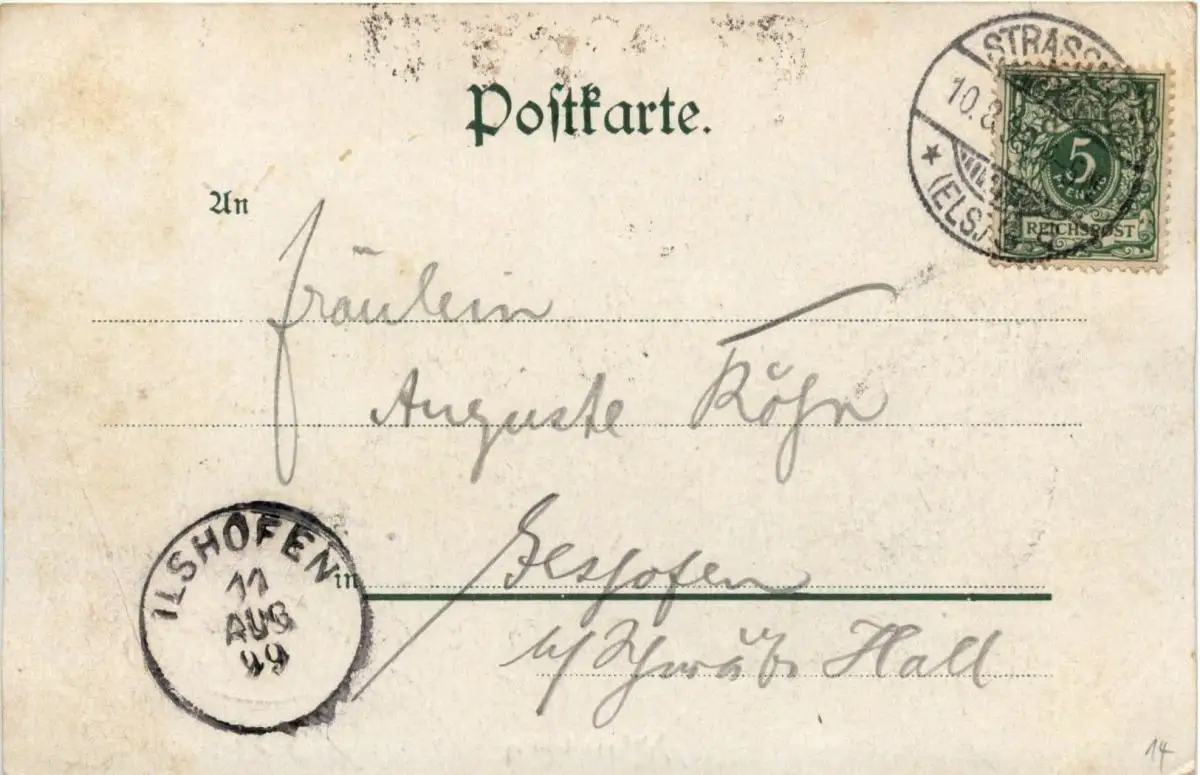 Postkarte.
STRASSB
10.8.99
(ELS.)
5
PFENNIG
REICHSPOST
An
Fräulein
Auguste Röhn
in
ILSHOFEN
11
AUG
99
Hall
14